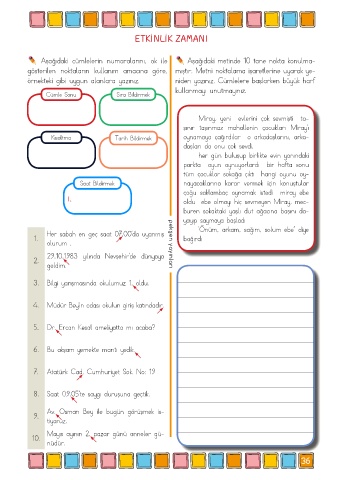 ETKİNLİK ZAMANI
Aşağıdaki cümlelerin numaralarını, ok ile
gösterilen noktaların kullanım amacına göre,
örnekteki gibi uygun alanlara yazınız.
Cümle Sonu
Sıra Bildirmek
Kısaltma
Tarih Bildirmek
Saat Bildirmek
1.
1. Her sabah en geç saat 07.00'da uyanmış
olurum.
2. 29.10.1983 yılında Nevşehir'de dünyaya
geldim.
3. Bilgi yarışmasında okulumuz 1. oldu.
4. Müdür Bey'in odası okulun giriş katındadır.
5. Dr. Ercan Kesal ameliyatta mı acaba?
6. Bu akşam yemekte mantı yedik.
7. Atatürk Cad. Cumhuriyet Sok. No: 19
8. Saat 09.05'te saygı duruşuna geçtik.
9. Av. Osman Bey ile bugün görüşmek is-
tiyoruz.
10. Mayıs ayının 2. pazar günü anneler gü-
nüdür.
pelikan yayınları
Aşağıdaki metinde 10 tane nokta konulma-
mıştır. Metni noktalama işaretlerine uyarak ye-
niden yazınız. Cümlelere başlarken büyük harf
kullanmayı unutmayınız.
Miray, yeni evlerini çok sevmişti ta-
şınır taşınmaz mahallenin çocukları Miray'ı
oynamaya çağırdılar o arkadaşlarını, arka-
daşları da onu çok sevdi
her gün buluşup birlikte evin yanındaki
parkta oyun oynuyorlardı bir hafta sonu
tüm çocuklar sokağa çıktı hangi oyunu oy-
nayacaklarına karar vermek için konuştular
çoğu saklambaç oynamak istedi miray ebe
oldu ebe olmayı hiç sevmeyen Miray, mec-
buren sokaktaki yaşlı dut ağacına başını da-
yayıp saymaya başladı
"Önüm, arkam, sağım, solum ebe" diye
bağırdı
36